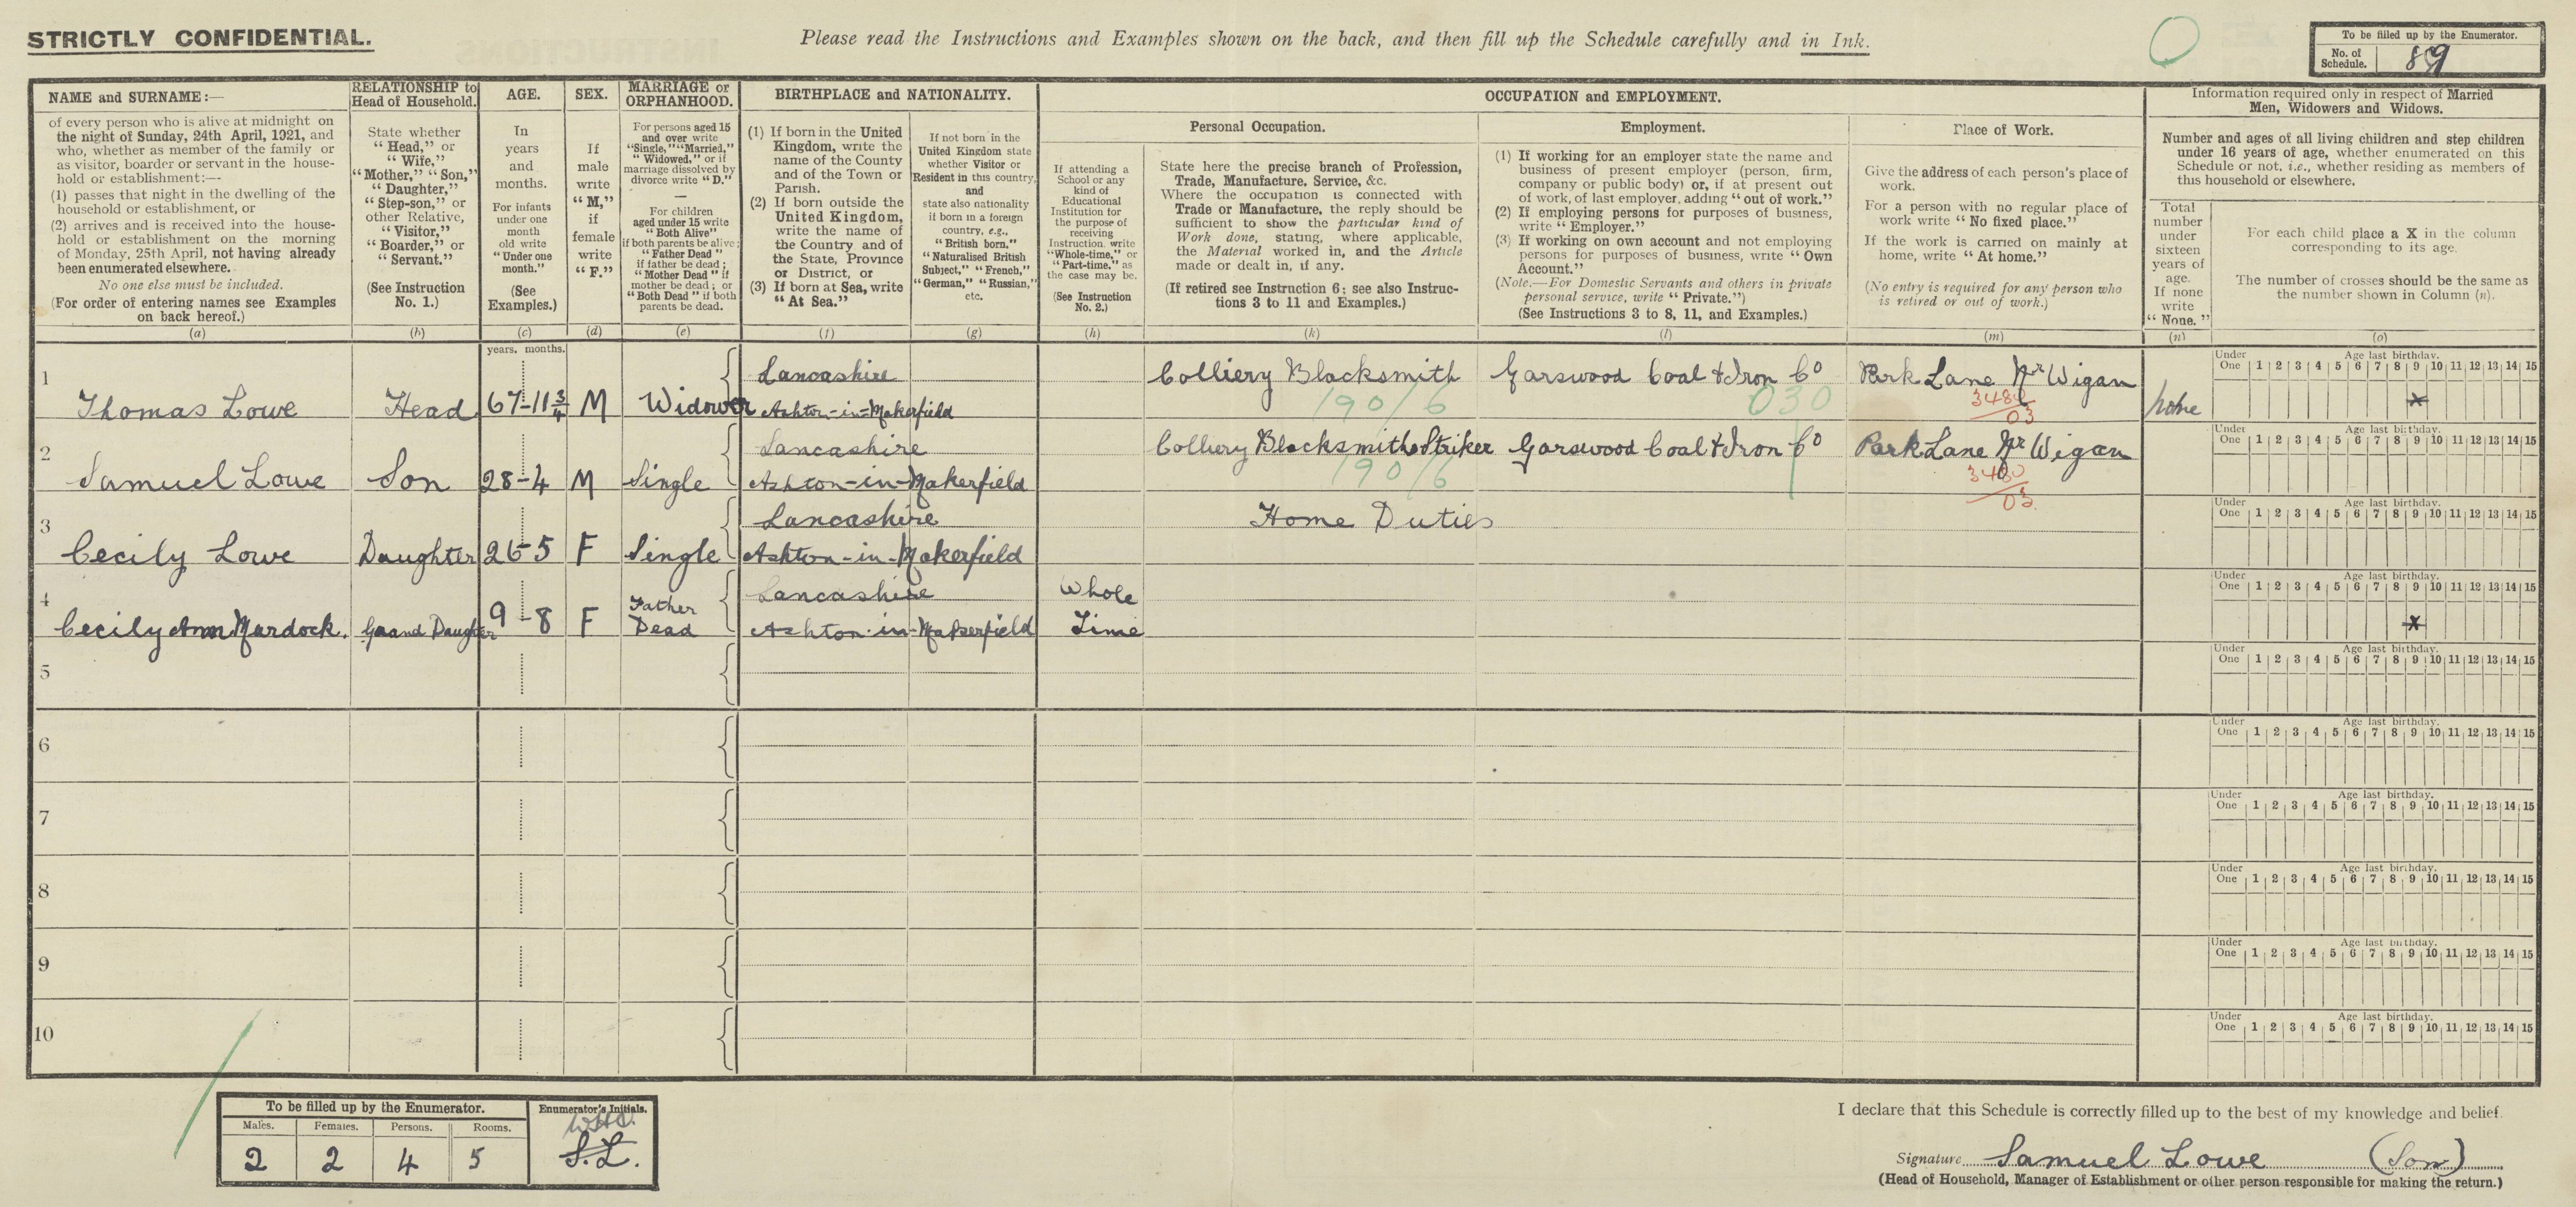 STRICTLY CONFIDENTIAL.
Please read the Instructions and Examples shown on the back, and then fill up the Schedule carefully and in Ink.
To be filled up by the Enumerator.
No. of Schedule. 89
NAME and SURNAME:—
of every person who is alive at midnight on
the night of Sunday, 24th April, 1921, and
who, whether as member of the family or
as visitor, boarder or servant in the house-
hold or establishment:—
(1) passes that night in the dwelling of the
household or establishment, or
(2) arrives and is received into the house-
hold or establishment on the morning
of Monday, 25th April, not having already
been enumerated elsewhere.
No one else must be included.
(For order of entering names see Examples
on back hereof.)
(a)
RELATIONSHIP to
Head of Household.
State whether
"Head," or
"Wife,"
"Mother," "Son,"
"Daughter,"
"Step-son," or
other Relative,
"Visitor,"
"Boarder," or
"Servant."
(See Instruction
No. 1.)
(b)
AGE.
In
years
and
months.
For infants
under one
month
old write
"Under one
month."
(See
Examples.)
(c)
SEX.
If
male
write
"M,"
if
female
write
"F."
(d)
MARRIAGE or
ORPHANHOOD.
For persons aged 15
and over write
"Single," "Married,"
"Widowed," or if
marriage dissolved by
divorce write "D."
—
For children
aged under 15 write
"Both Alive"
if both parents be alive;
"Father Dead"
if father be dead;
"Mother Dead" if
mother be dead; or
"Both Dead" if both
parents be dead.
(e)
BIRTHPLACE and NATIONALITY.
(1) If born in the United
Kingdom, write the
name of the County
and of the Town or
Parish.
(2) If born outside the
United Kingdom,
write the name of
the Country and of
the State, Province
or District, or
(3) If born at Sea, write
"At Sea."
(f)
If not born in the
United Kingdom state
whether Visitor or
Resident in this country,
and
state also nationality
if born in a foreign
country, e.g.,
"British born,"
"Naturalised British
Subject," "French,"
"German," "Russian,"
etc.
(g)
OCCUPATION and EMPLOYMENT.
If attending a
School or any
kind of
Educational
Institution for
the purpose of
receiving
Instruction, write
"Whole-time," or
"Part-time," as
the case may be.
(See Instruction
No. 2.)
(h)
Personal Occupation.
State here the precise branch of Profession,
Trade, Manufacture, Service, &c.
Where the occupation is connected with
Trade or Manufacture, the reply should be
sufficient to show the particular kind of
Work done, stating, where applicable,
the Material worked in, and the Article
made or dealt in, if any.
(If retired see Instruction 6; see also Instruc-
tions 3 to 11 and Examples.)
(k)
Employment.
(1) If working for an employer state the name and
business of present employer (person, firm,
company or public body) or, if at present out
of work, of last employer, adding "out of work."
(2) If employing persons for purposes of business,
write "Employer."
(3) If working on own account and not employing
persons for purposes of business, write "Own
Account."
(Note.—For Domestic Servants and others in private
personal service, write "Private.")
(See Instructions 3 to 8, 11, and Examples.)
(l)
Place of Work.
Give the address of each person's place of
work.
For a person with no regular place of
work write "No fixed place."
If the work is carried on mainly at
home, write "At home."
(No entry is required for any person who
is retired or out of work.)
(m)
Information required only in respect of Married
Men, Widowers and Widows.
Number and ages of all living children and step children
under 16 years of age, whether enumerated on this
Schedule or not, i.e., whether residing as members of
this household or elsewhere.
Total
number
under
sixteen
years of
age.
If none
write
"None."
(n)
For each child place a X in the column
corresponding to its age.
The number of crosses should be the same as
the number shown in Column (n).
(o)
years. months.
1 Thomas Lowe Head 67-11¾ M Widower Lancashire
Ashton-in-Makerfield Colliery Blacksmith Garswood Coal & Iron Co Park Lane Nr Wigan none
190/6 030 3480/03
Under One Age last birthday. 1 2 3 4 5 6 7 8 9 10 11 12 13 14 15
X
2 Samuel Lowe Son 28-4 M Single Lancashire
Ashton-in-Makerfield Colliery Blacksmiths Striker Garswood Coal & Iron Co Park Lane Nr Wigan
190/6 3480/03
Under One Age last birthday. 1 2 3 4 5 6 7 8 9 10 11 12 13 14 15
3 Cecily Lowe Daughter 26-5 F Single Lancashire
Ashton-in-Makerfield Home Duties
Under One Age last birthday. 1 2 3 4 5 6 7 8 9 10 11 12 13 14 15
4 Cecily Ann Murdock. Grand Daughter 9-8 F Father Dead Lancashire
Ashton-in-Makerfield Whole Time
Under One Age last birthday. 1 2 3 4 5 6 7 8 9 10 11 12 13 14 15
X
5
Under One Age last birthday. 1 2 3 4 5 6 7 8 9 10 11 12 13 14 15
6
Under One Age last birthday. 1 2 3 4 5 6 7 8 9 10 11 12 13 14 15
7
Under One Age last birthday. 1 2 3 4 5 6 7 8 9 10 11 12 13 14 15
8
Under One Age last birthday. 1 2 3 4 5 6 7 8 9 10 11 12 13 14 15
9
Under One Age last birthday. 1 2 3 4 5 6 7 8 9 10 11 12 13 14 15
10
Under One Age last birthday. 1 2 3 4 5 6 7 8 9 10 11 12 13 14 15
To be filled up by the Enumerator.
Males. Females. Persons. Rooms.
2 2 4 5
Enumerator's Initials.
S.L.
I declare that this Schedule is correctly filled up to the best of my knowledge and belief.
Signature Samuel Lowe (Son)
(Head of Household, Manager of Establishment or other person responsible for making the return.)